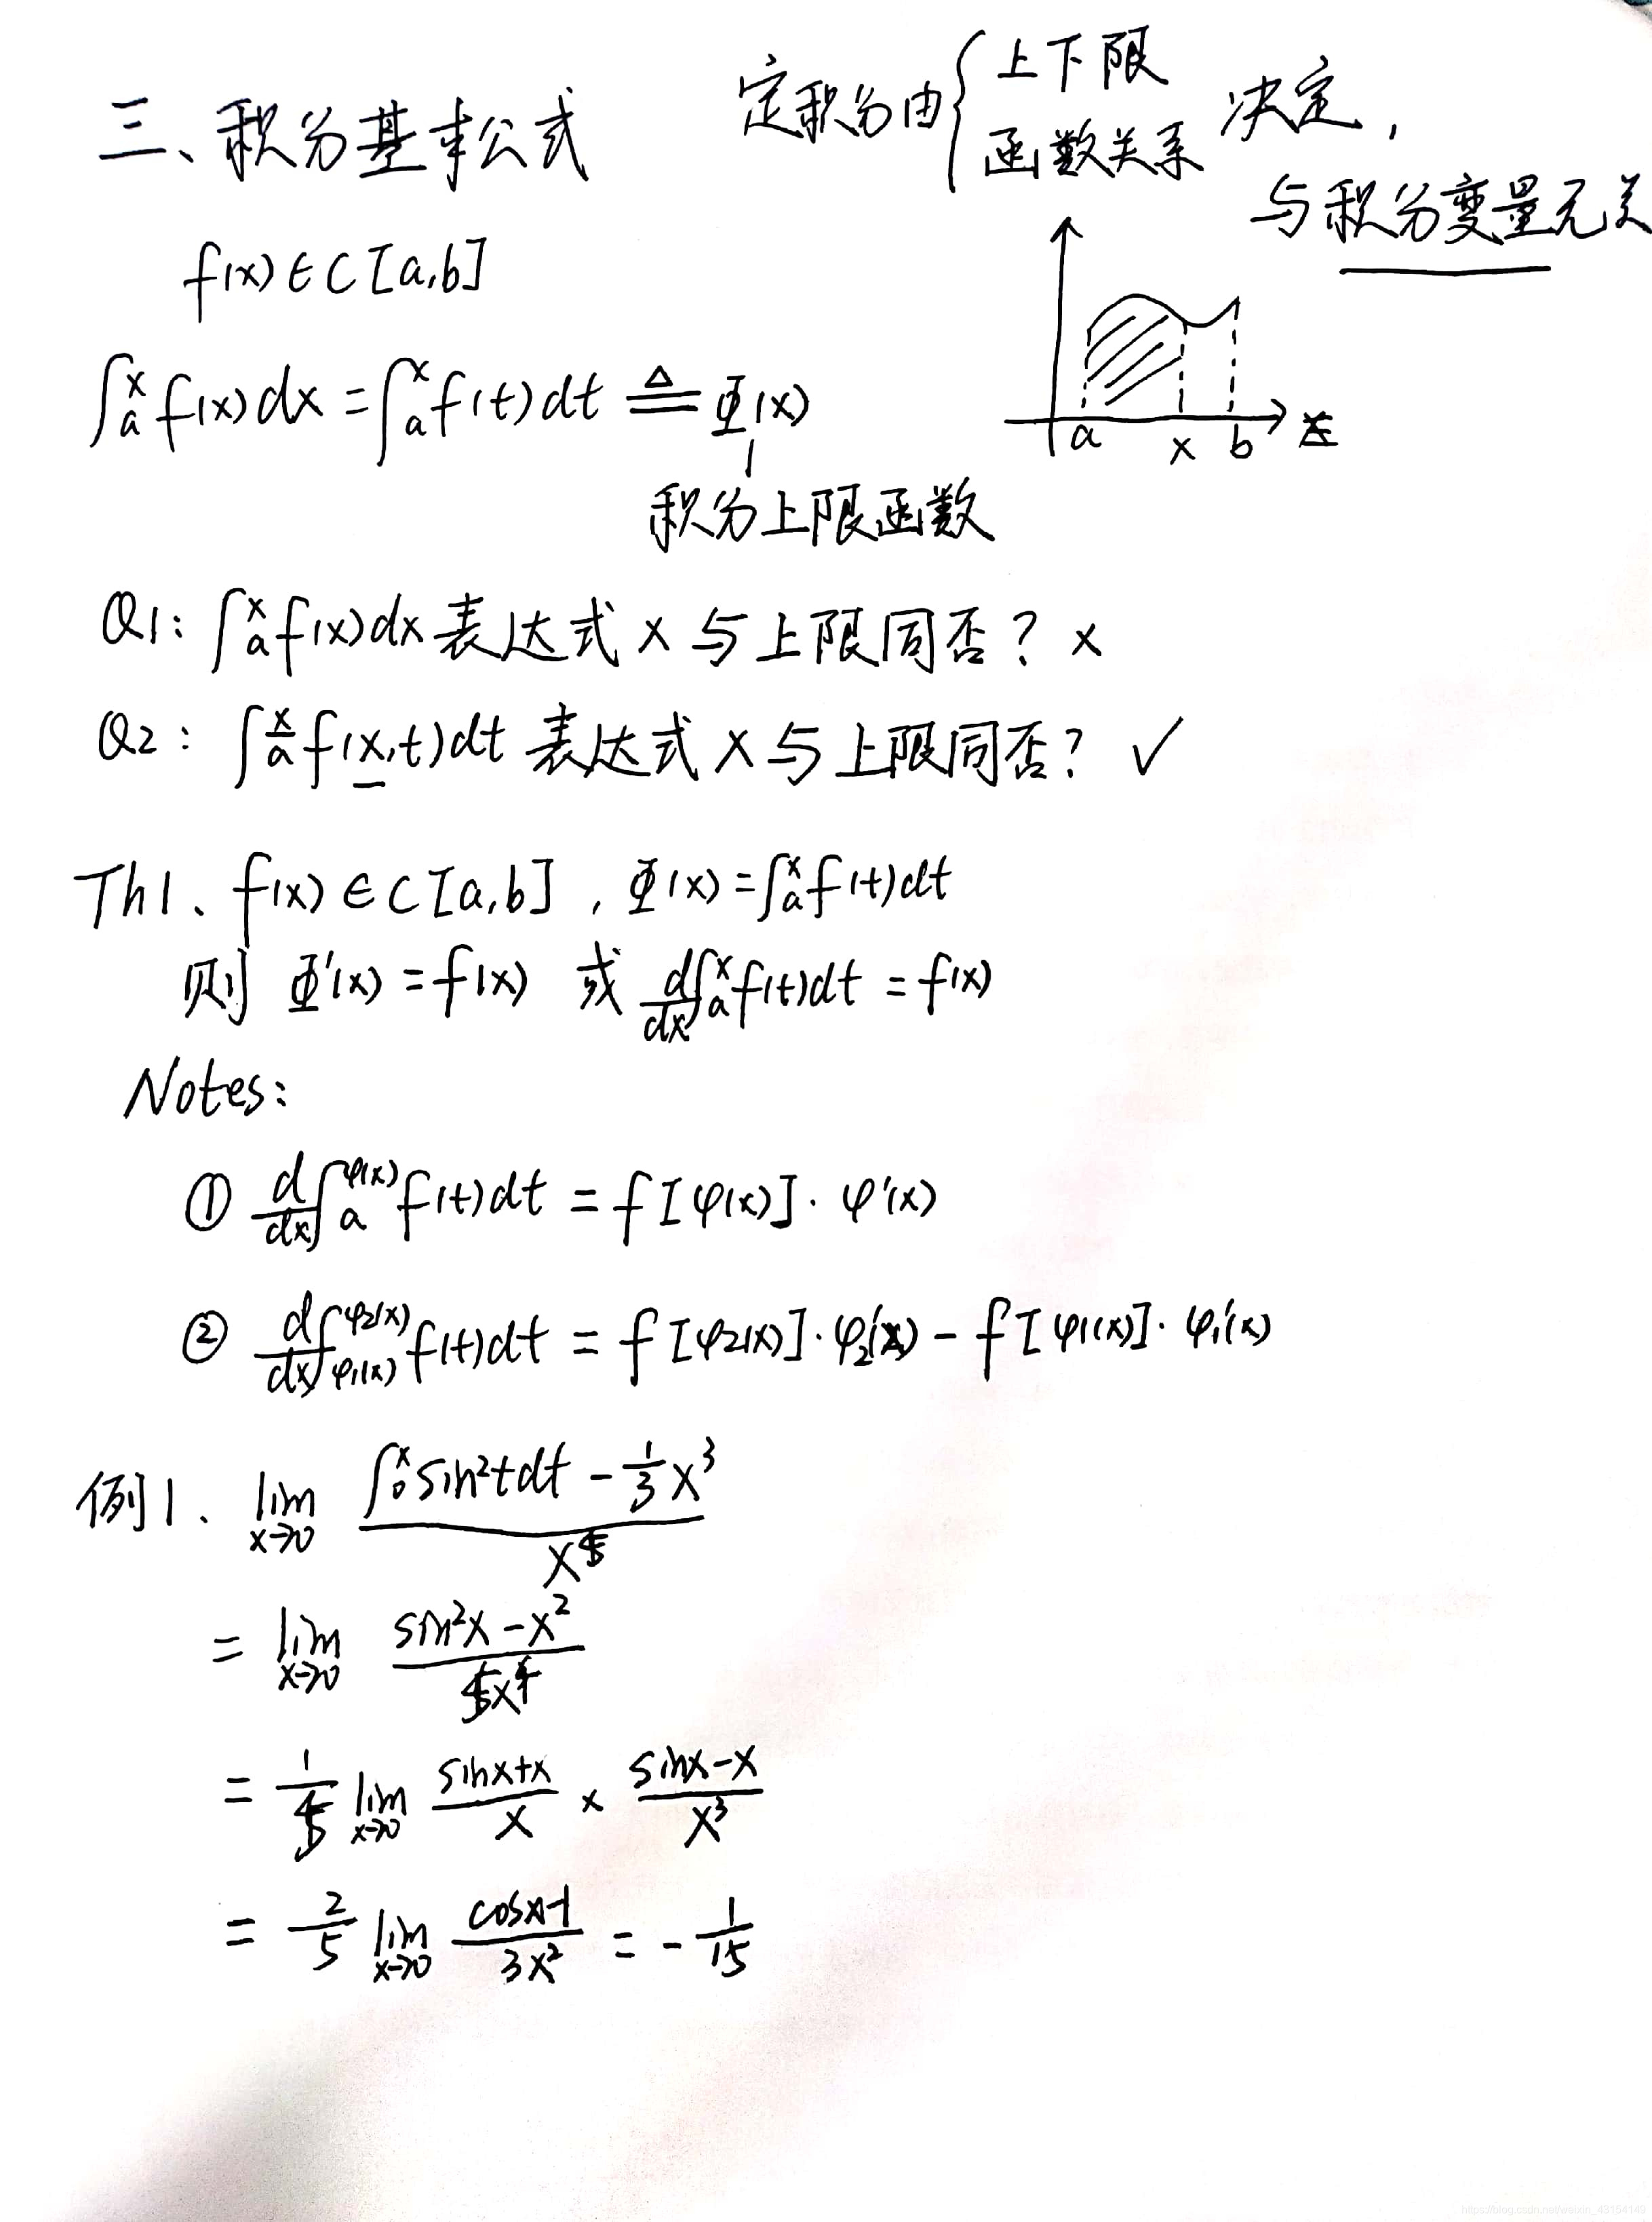 三、积分基本公式
定积分由{上下限 函数关系 决定，
与积分变量无关
f(x)∈C[a,b]
∫ₐˣ f(x)dx = ∫ₐˣ f(t)dt ≜ Φ(x)
积分上限函数
a x b
Q1: ∫ₐˣ f(x)dx 表达式 x 与上限同否? ×
Q2: ∫ₐˣ f(x,t)dt 表达式 x 与上限同否? ✓
Th1、f(x)∈C[a,b], Φ(x)=∫ₐˣ f(t)dt
则 Φ'(x)=f(x) 或 d/dx ∫ₐˣ f(t)dt = f(x)
Notes:
① d/dx ∫ₐ^φ(x) f(t)dt = f[φ(x)]·φ'(x)
② d/dx ∫_φ₁(x)^φ₂(x) f(t)dt = f[φ₂(x)]·φ₂'(x) - f[φ₁(x)]·φ₁'(x)
例1、lim x→0 (∫₀ˣ sin²t dt - 1/3 x³) / x⁵
= lim x→0 (sin²x - x²) / 5x⁴
= 1/5 lim x→0 (sinx+x)/x × (sinx-x)/x³
= 2/5 lim x→0 (cosx-1)/3x² = -1/15
https://blog.csdn.net/weixin_43154149